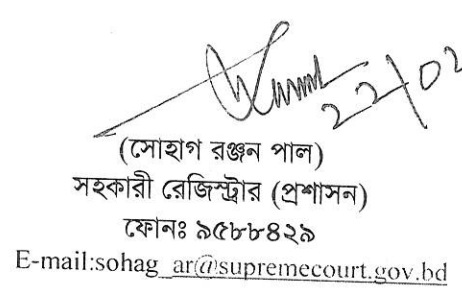 22/02
(সোহাগ রঞ্জন পাল)
সহকারী রেজিস্ট্রার (প্রশাসন)
ফোনঃ ৯৫৮৮৪২৯
E-mail:sohag_ar@supremecourt.gov.bd